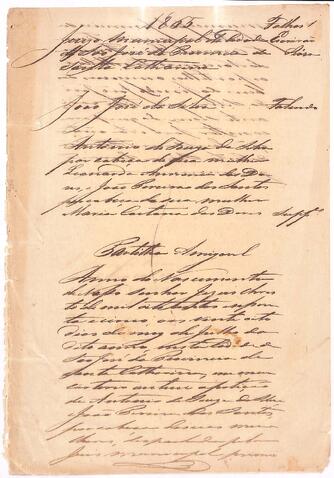 1865 Folhas 1
Juizo Municipal da Cidade Escrivão
de São José da Provincia de
Santa Catharina
João José da Silva Falecido
Antonio de Souza da Silva
por cabeça de sua mulher
Leonarda de
Deus, e João Pereira dos Santos
por cabeça de sua mulher
Maria Caetana de Deus Suppes
Partilha Amigavel
Anno do Nascimento
de Nosso Senhor Jezus Chris
to de mil oito centos e sessen
ta e cinco, aos vinte oito
dias do mez de Julho do
dito anno, nesta Cidade de
São José da Provincia de
Santa Catharina, em meu
cartorio autuei a petição
de Antonio de Souza da Silva
e João Pereira dos Santos,
por cabeça de suas mu
lheres, despachada pelo
Juiz Municipal